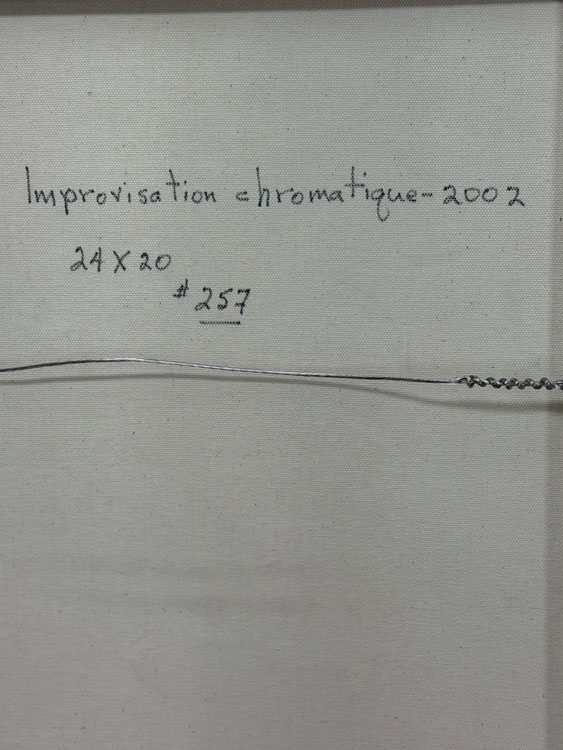 Improvisation chromatique-2002
24 X 20
# 257